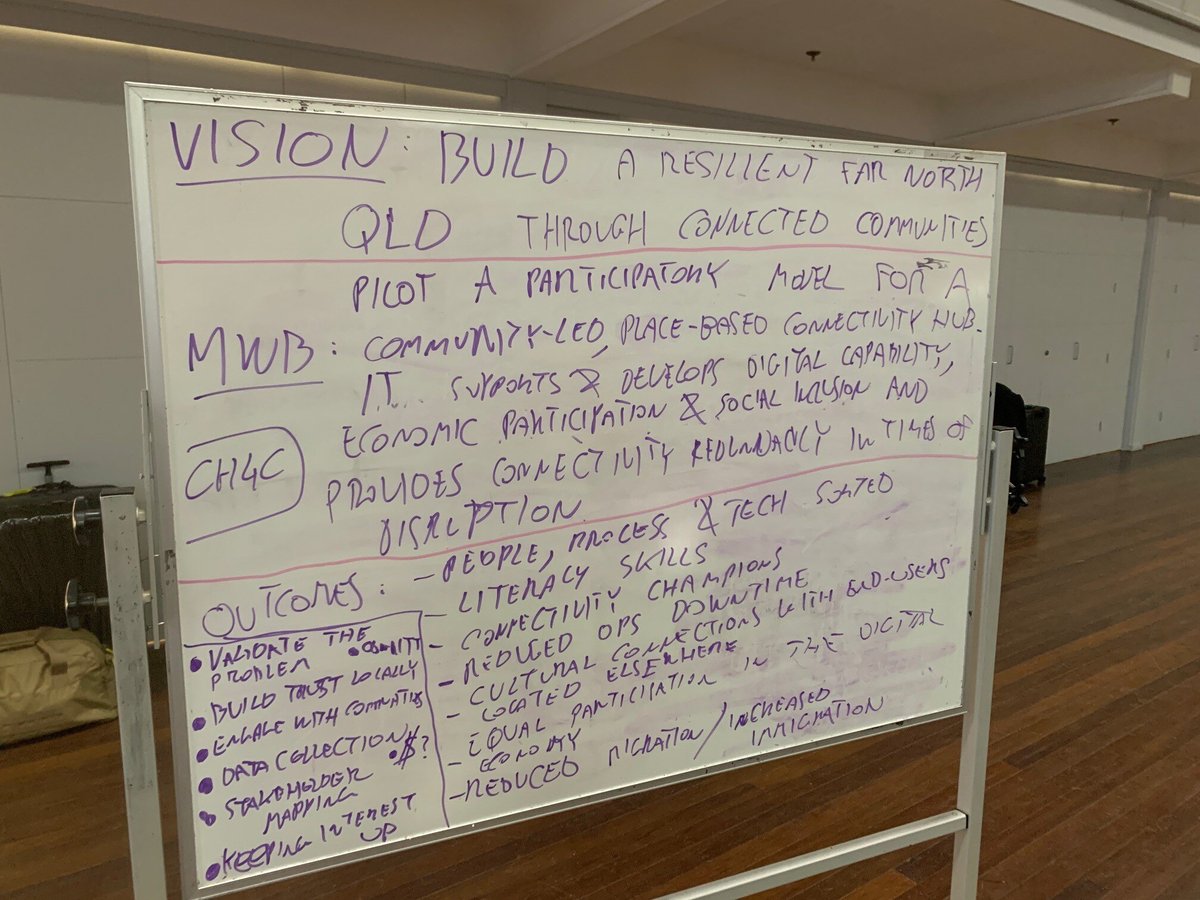 VISION: BUILD A RESILIENT FAR NORTH
QLD THROUGH CONNECTED COMMUNITIES
PILOT A PARTICIPATORY MODEL FOR A
MWB: COMMUNITY-LED, PLACE-BASED CONNECTIVITY HUB.
IT... SUPPORTS & DEVELOPS DIGITAL CAPABILITY,
ECONOMIC PARTICIPATION & SOCIAL INCLUSION AND
CH4C
PROVIDES CONNECTIVITY REDUNDANCY IN TIMES OF
DISRUPTION
OUTCOMES:
- PEOPLE, PROCESS & TECH SORTED
- LITERACY SKILLS
- CONNECTIVITY CHAMPIONS
- REDUCED OPS DOWNTIME
- CULTURAL CONNECTIONS WITH END-USERS
LOCATED ELSEWHERE
- EQUAL PARTICIPATION IN THE DIGITAL
ECONOMY
- REDUCED MIGRATION / INCREASED
IMMIGRATION
• VALIDATE THE
PROBLEM
• BUILD TRUST LOCALLY
• ENGAGE WITH COMMUNITIES
• DATA COLLECTION
• $?
• STAKEHOLDER
MAPPING
• KEEPING INTEREST
UP